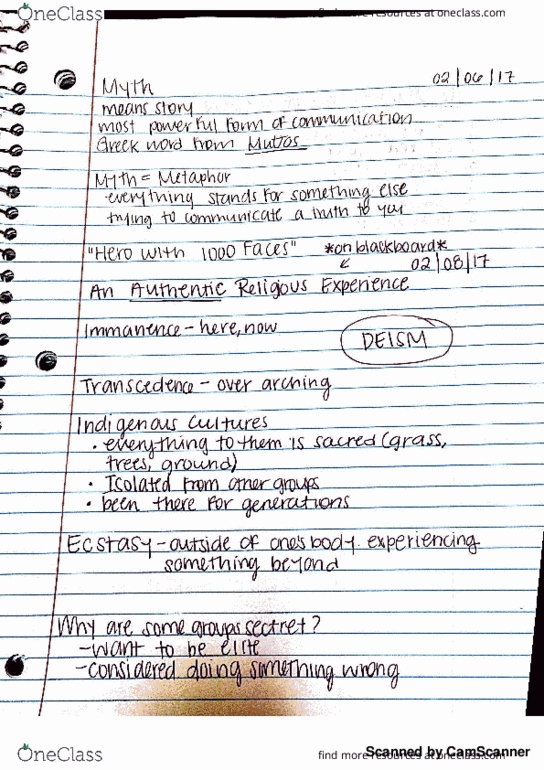 OneClass
find more resources at oneclass.com
Myth
02/06/17
means story
most powerful form of communication
Greek word from Mutos
Myth = Metaphor
everything stands for something else
trying to communicate a truth to you
"Hero with 1000 Faces" *on blackboard*
02/08/17
An Authentic Religious Experience
Immanence - here, now
DEISM
Transcedence - over arching
Indigenous Cultures
• everything to them is sacred (grass,
trees, ground)
• Isolated from other groups
• been there for generations
Ecstasy - outside of one's body. experiencing
something beyond
Why are some groups sectret?
- want to be elite
- considered doing something wrong
OneClass
find more resources at oneclass.com
Scanned by CamScanner